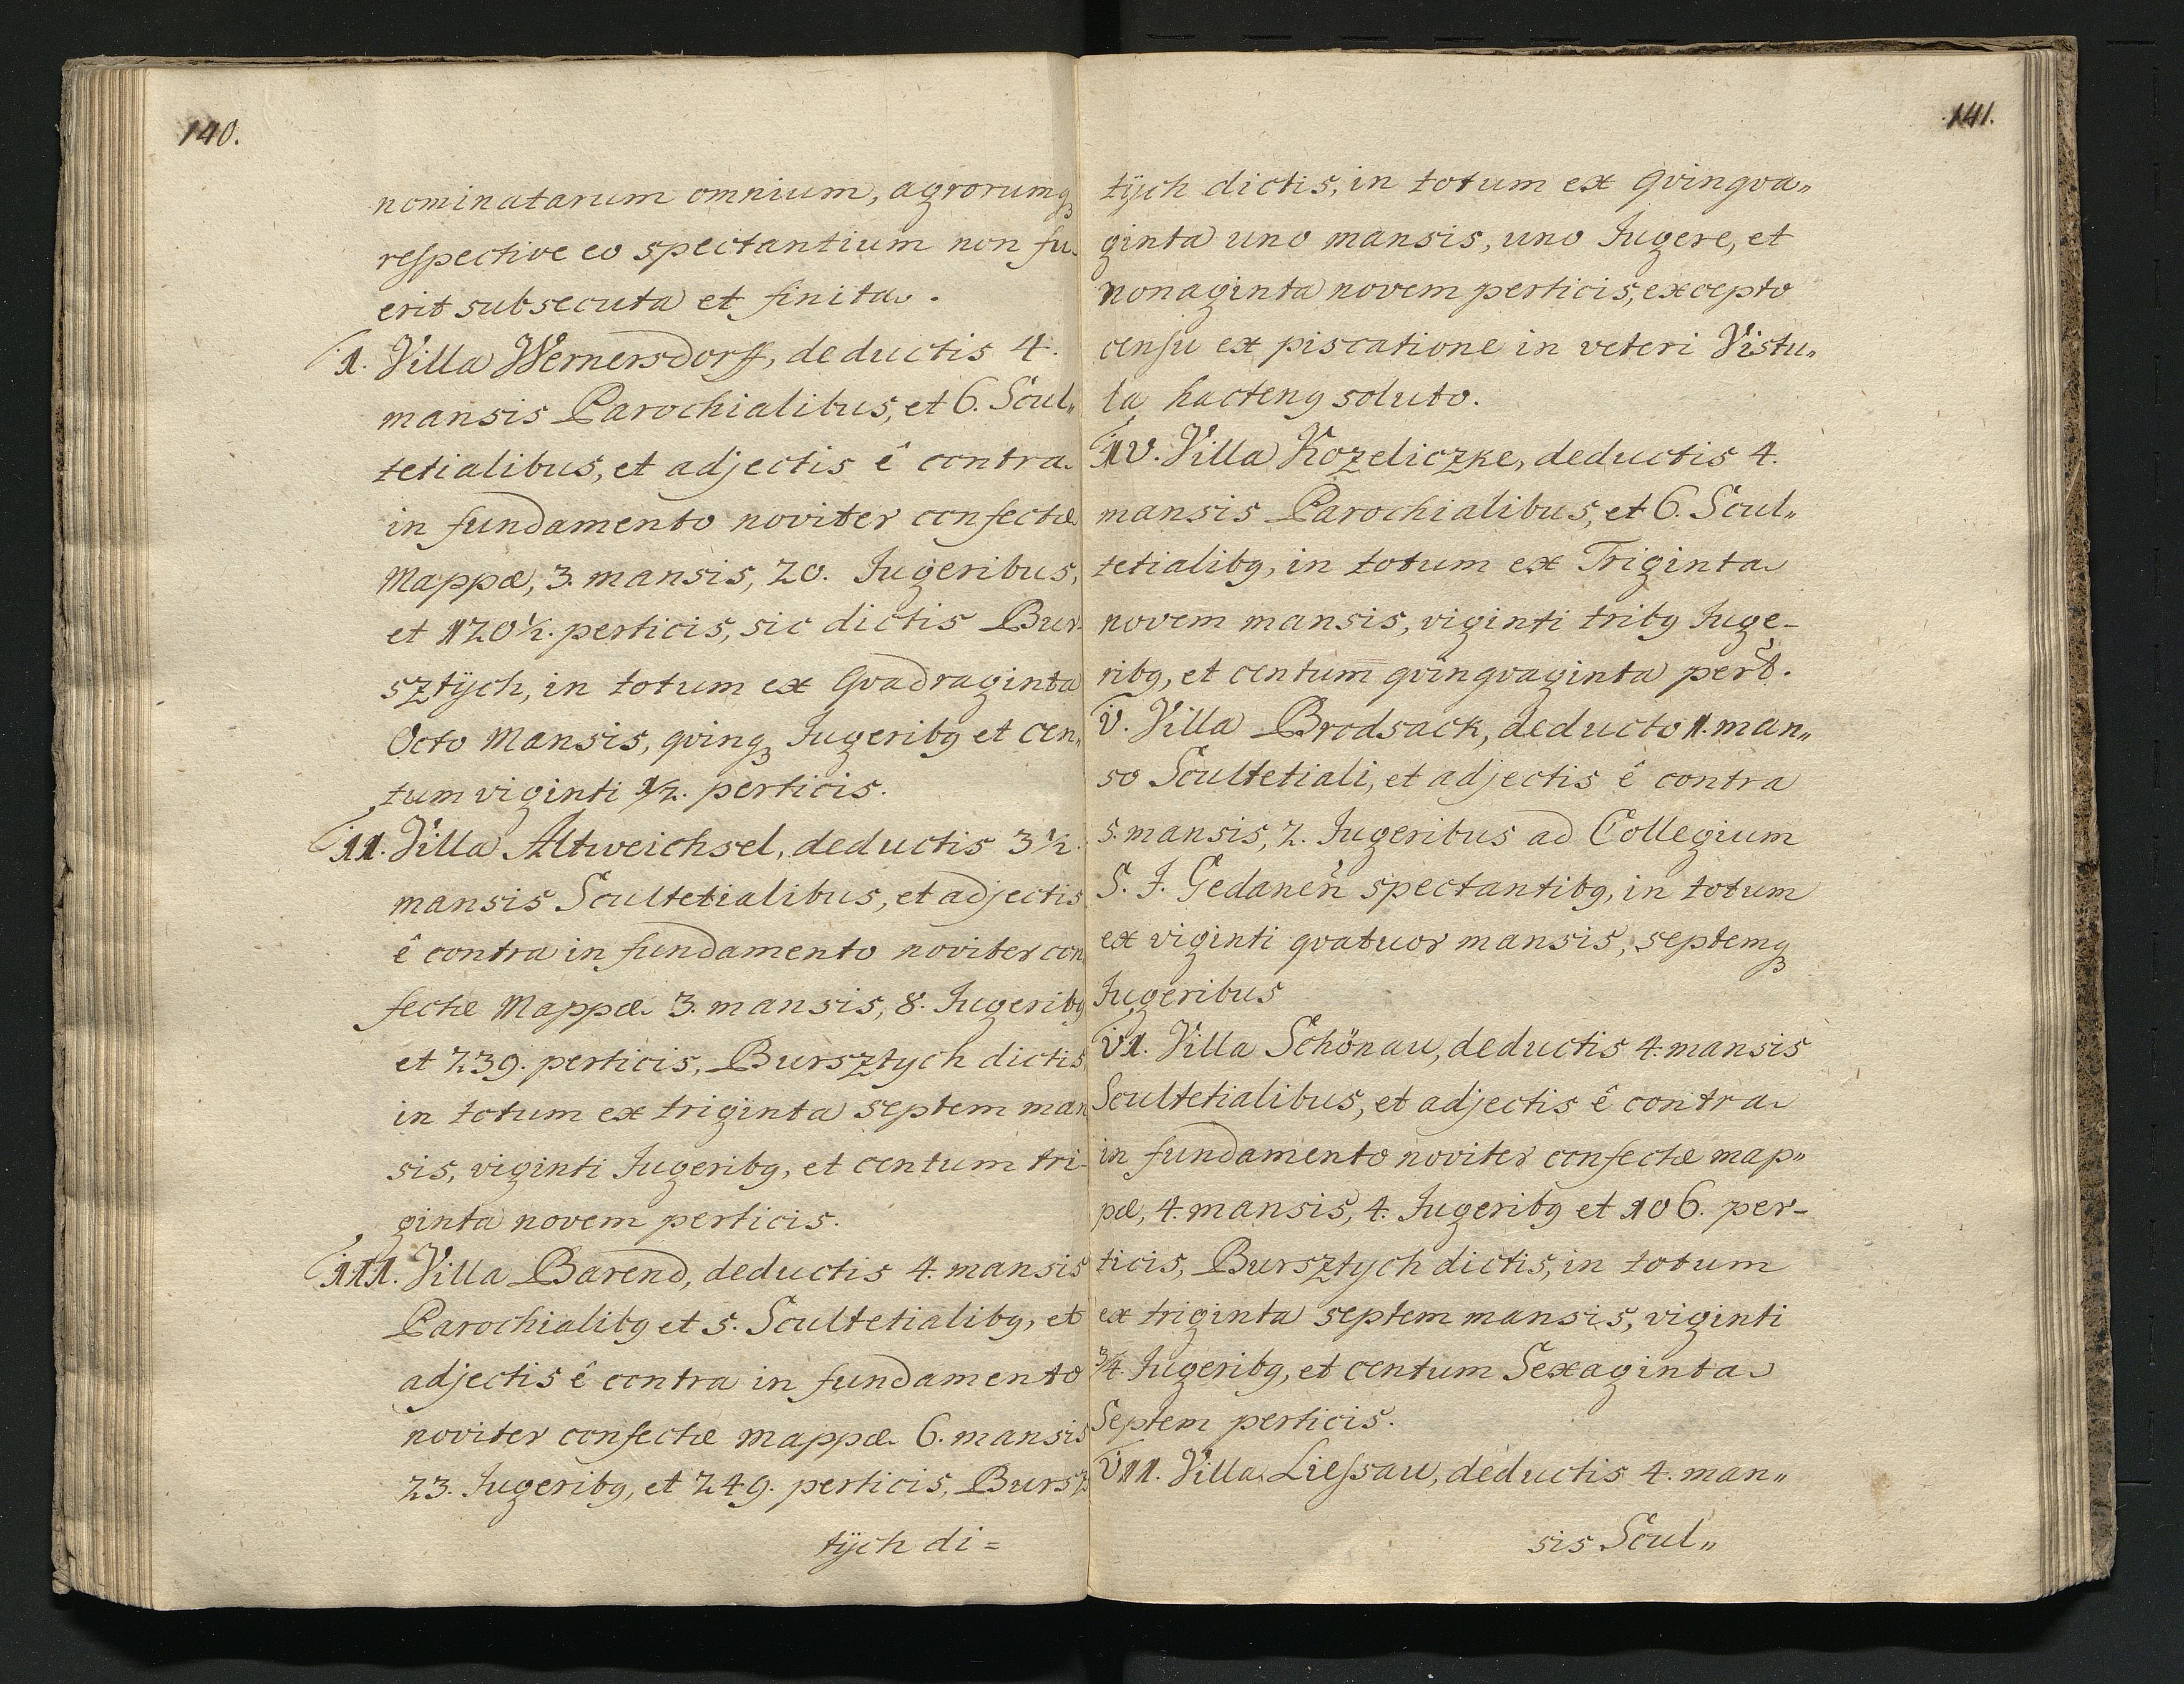 140.
nominatarum omnium, agrorumqꝫ
respective eo spectantium non fu-
erit subsecuta et finita.
I. Villa Wernersdorff, deductis 4.
mansis Parochialibus, et 6. Scul„
tetialibus, et adjectis ê contra
in fundamento noviter confectæ
Mappæ, 3. mansis, 20. Jugeribus,
et 120½. perticis, sic dictis Bur-
sztÿch, in totum ex Qvadraginta
Octo Mansis, qvinqꝫ Jugeribꝰ et cen„
tum viginti ½. perticis.
II. Villa Altweichsel, deductis 3½.
mansis Scultetialibus, et adjectis
ê contra in fundamento noviter con„
fectæ Mappæ 3. mansis, 8. Jugeribꝰ
et 239. perticis, Bursztÿch dictis
in totum ex triginta septem man
sis, viginti Jugeribꝰ, et centum tri-
ginta novem perticis.
III. Villa Barend, deductis 4. mansis
Parochialibꝰ et 5. Scultetialibꝰ, et
adjectis ê contra in fundamento
noviter confectæ mappæ 6. mansis
23. Jugeribꝰ, et 249. perticis, Bursz
tÿch di=
141.
tÿch dictis, in totum ex qvinqva„
ginta uno mansis, uno Jugere, et
nonaginta novem perticis, excepto
censu ex piscatione in veteri Vistu„
la hactenꝰ soluto.
IV. Villa Kozeliczke, deductis 4.
mansis Parochialibus, et 6. Scul„
tetialibꝰ, in totum ex Triginta
novem mansis, viginti tribꝰ Juge-
ribꝰ, et centum qvinqvaginta pert.
V. Villa Brodsack, deducto 1. man„
so Scultetiali, et adjectis ê contra
5. mansis, 2. Jugeribus ad Collegium
S. J. Gedanen̄ spectantibꝰ, in totum
ex viginti qvatuor mansis, septemqꝫ
Jugeribus
VI. Villa Schönau, deductis 4. mansis
Scultetialibus, et adjectis ê contra
in fundamento noviter confectæ map„
pæ, 4. mansis, 4. Jugeribꝰ et 106. per-
ticis, Bursztÿch dictis, in totum
ex triginta septem mansis, viginti
¾. Jugeribꝰ, et centum Sexaginta
Septem perticis.
VII. Villa Lieſsau, deductis 4. man„
sis Scul„